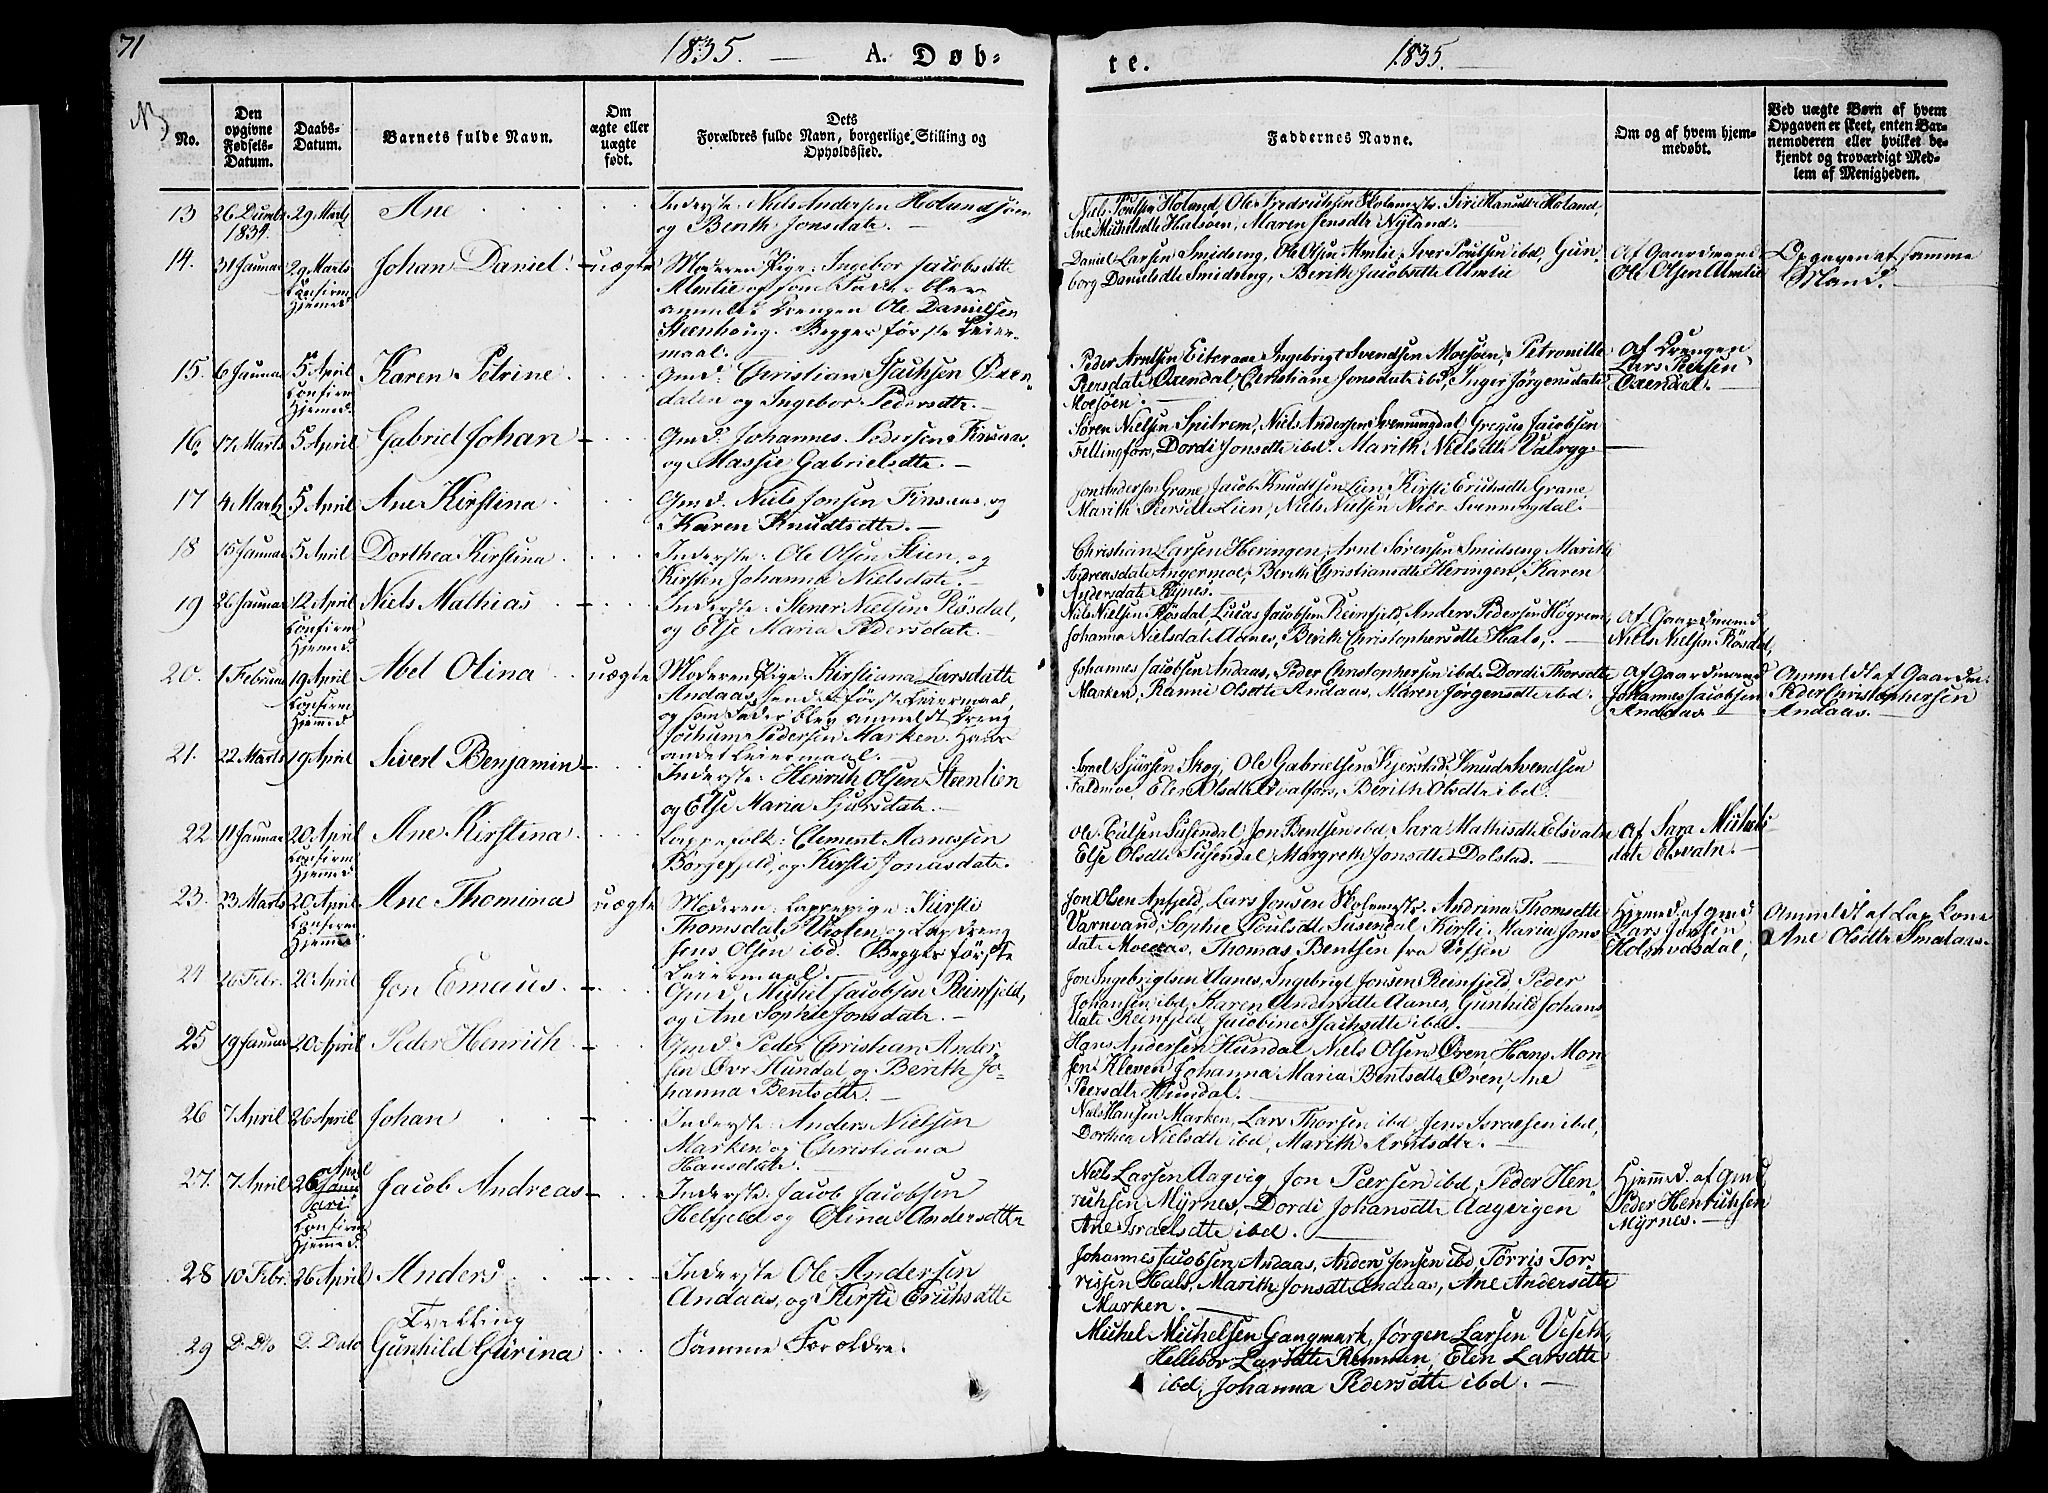 71
1835. — A. Døb-
te. 1835. —
No.
Den opgivne Fødsels-Datum.
Daabs-Datum.
Barnets fulde Navn.
Om ægte eller uægte født.
Dets Forældres fulde Navn, borgerlige Stilling og Opholdssted.
Faddernes Navne.
Om og af hvem hjemmedøbt.
Ved uægte Børn af hvem Opgaven er skeet, enten Barnemoderen eller hvilket bekjendt og troværdigt Medlem af Menigheden.
13 26 Decembr 1834. 29 Martz Ane
Inderste: Niels Andersen Holand
og Berith Jonsdatr. —
Niels Poulsen Holand, Ole Fredrichsen Skolemestr. Siri Hansdtr Holand,
Ane Michelsdtr Halsøen, Maren Jensdtr Nyland
14. 31 Januar 29 Marts Confirm. Hjemed. Johan Daniel. uægte
Moderen Pige: Ingebor Jacobsdtr
Almlie og som Fader blev
anmeldt Drengen Ole Danielsen
Steenhoug. Begges første Leier-
maal.
Daniel Larsen Smideng, Ole Olsen Almlie, Iver Poulsen ibd, Gun-
borg Danielsdtr Smideng, Berith Jacobsdtr Almlie
Af Gaardmand
Ole Olsen Almlie
Opgaven af samme
Mand.
15. 6 Januar 5 April Confirm Hjemed. Karen Petrine
Gmd: Christian Isachsen Øxen-
dalen og Ingebor Pedersdtr. —
Peder Arntsen Eiteraae, Ingebrigt Svendsen Moesøen, Petronille
Piersdatr Oxendal, Christiane Jonsdatr ibd, Inger Jørgensdatr
Moesøen. —
Af Drengen
Lars Piersen
Oxendal. —
16. 17 Marts 5 April Gabriel Johan
Gmd. Johannes Pedersen Finsaas
og Massie Gabrielsdtr. —
Søren Nielsen Spitrem, Niels Andersen Svenningdal, Gregus Jacobsen
Fellingfors, Dordi Jonsdtr ibd. Marith Nielsdtr Valryg.
17 4 Martz 5 April Ane Kirstina
Gmd. Niels Jonsen Finsaas og
Karen Knudtsdtr. —
Jon Andersen Grane, Jacob Knudtsen Lien, Kirsti Erichsdtr Grane,
Marith Piersdtr Lien, Niels Nielsen Svenningdal. —
18 15 Januar 5 April Dorthea Kirstina
Inderste: Ole Olsen Stien, og
Kirsten Johanna Nielsdatr. —
Christian Larsen Heringen, Arnt Sørensen Smideng, Marith
Andreasdatr Angermoe, Berith Christiansdtr Heringen, Karen
Andersdatr Rynes. —
19 26 Januar 12 April Confirm Hjemed. Niels Mathias
Inderste: Stener Nielsen Røsdal,
og Else Maria Pedersdatr —
Niels Nielsen Røsdal, Lucas Jacobsen Reinfjeld, Anders Pedersen Høgrem
Johanna Nielsdal Aanes, Berith Christophersdtr Hals. —
Af Gaardmand
Niels Nielsen Røsdal,
20. 1 Februar 19 April Confirm Hjemed. Abel Olina uægte
Moderen Pige: Kirstiana Larsdatter
Andaas, hendes første Leiermaal,
og som Fader blev anmeldt Dreng
Jochum Pedersen Marken. Hans
andet Leiermaal. —
Johannes Jacobsen Andaas, Peder Christophersen ibd, Dordi Thorsdtr
Marken, Ranni Olsdtr Andaas, Maren Jørgensdtr ibd.
Af Gaardmand
Johannes Jacobsen
Andaas —
Anmeldt af Gaardm.
Peder Christophersen
Andaas. —
21. 22 Marts 19 April Sivert Benjamin
Inderste: Heinrich Olsen Steenlien
og Else Maria Sjursdatr. —
Israel Sjursen Skog, Ole Gabrielsen Kjerstad, Knud Svendsen
Faldmoe, Elen Olsdtr Qvalfors, Berith Olsdtr ibd.
22. 11 Januar 20 April Confirm Hjemed Ane Kirstina.
Lappefolk: Clement Asmessen
Børgefjeld, og Kirsti Jonasdatr.
Ole Poulsen Susendal, Jon Bentsen ibd, Sara Mathisdtr Elsvatn
Else Olsdtr Susendal, Margreth Jonsdtr Dolstad. —
Af Sara Michels-
datr Elsvatn. —
23. 23 Marts 20 April Confirm Hjemed Ane Thomina uægte
Moderen: Lappepige: Kirsti
Thomsdatr og Lap dreng
Jens Olsen ibd. Begges første
Leiermaal.
Jon Olsen Apfjeld, Lars Jonsen Skolemestr. Andrina Thomsdtr
Varnvand, Sophie Poulsdtr Susendal, Kirsti Maria Jons
datr Moeaas, Thomas Bentsen fra Vefsen
Hjemed. af Gmd
Lars Jonsen
Holmvasdal,
Anmeldt af Lap Kone
Ane Olsdtr Smataas.
24 26 Febr. 20 April Jon Emaus
Gmd, Michel Jacobsen Reinfjeld,
og Ane Sophie Jonsdatr. —
Jon Ingebrigtsen Aanes, Ingebrigt Jonsen Reinfjeld, Peder
Johansen ibd, Karen Andersdtr Aanes, Gunhild Johans-
datr Reinfjeld, Jacobine Isachsdtr ibd.
25 19 Januar 20 April Peder Henrich
Gmd. Peder Christian Ander-
sen Øvr Hundal og Berith Jo-
hanna Bentsdtr. —
Hans Andersen Hundal, Niels Olsen Øren, Hans Mon-
sen Kleven, Johanna Maria Bentsdtr Øren, Ane
Piersdtr Hundal. —
26 7 April 26 April Johan
Inderste: Anders Nielsen
Marken og Christiana
Hansdatr. —
Niels Hansen Marken, Lars Thorsen ibd, Jens Israelsen ibd,
Dorthea Nielsdtr ibd, Marith Arntsdtr. —
27. 7 April 26 April Confirm Hjemed. Jacob Andreas
Inderste. Jacob Jacobsen
Helfjeld og Olina Andersdtr
Niels Larsen Aagvig, Jon Piersen ibd, Peder Hen-
richsen Myrnes, Dordi Johansdtr Aagvigen
Ane Israelsdtr ibd. —
Hjemmed. af Gmd
Peder Henrichsen
Myrnes. —
28 10 Febr. 26 April Anders
Inderste Ole Andersen
Andaas, og Kirsti Erichsdtr
Johannes Jacobsen Andaas, Anders Jensen ibd Tørris Tor-
rissen Hals, Marith Jonsdtr Andaas, Ane Andersdtr
Marken. —
Tvilling
29 D. Do D. Dato Gunhild Gurina
Samme Forældre.
Michel Michelsen Gangmark, Jørgen Larsen
Hellebor Larsdtr Remmen, Elen Larsdtr
ibd, Johanna Pedersdtr ibd. —